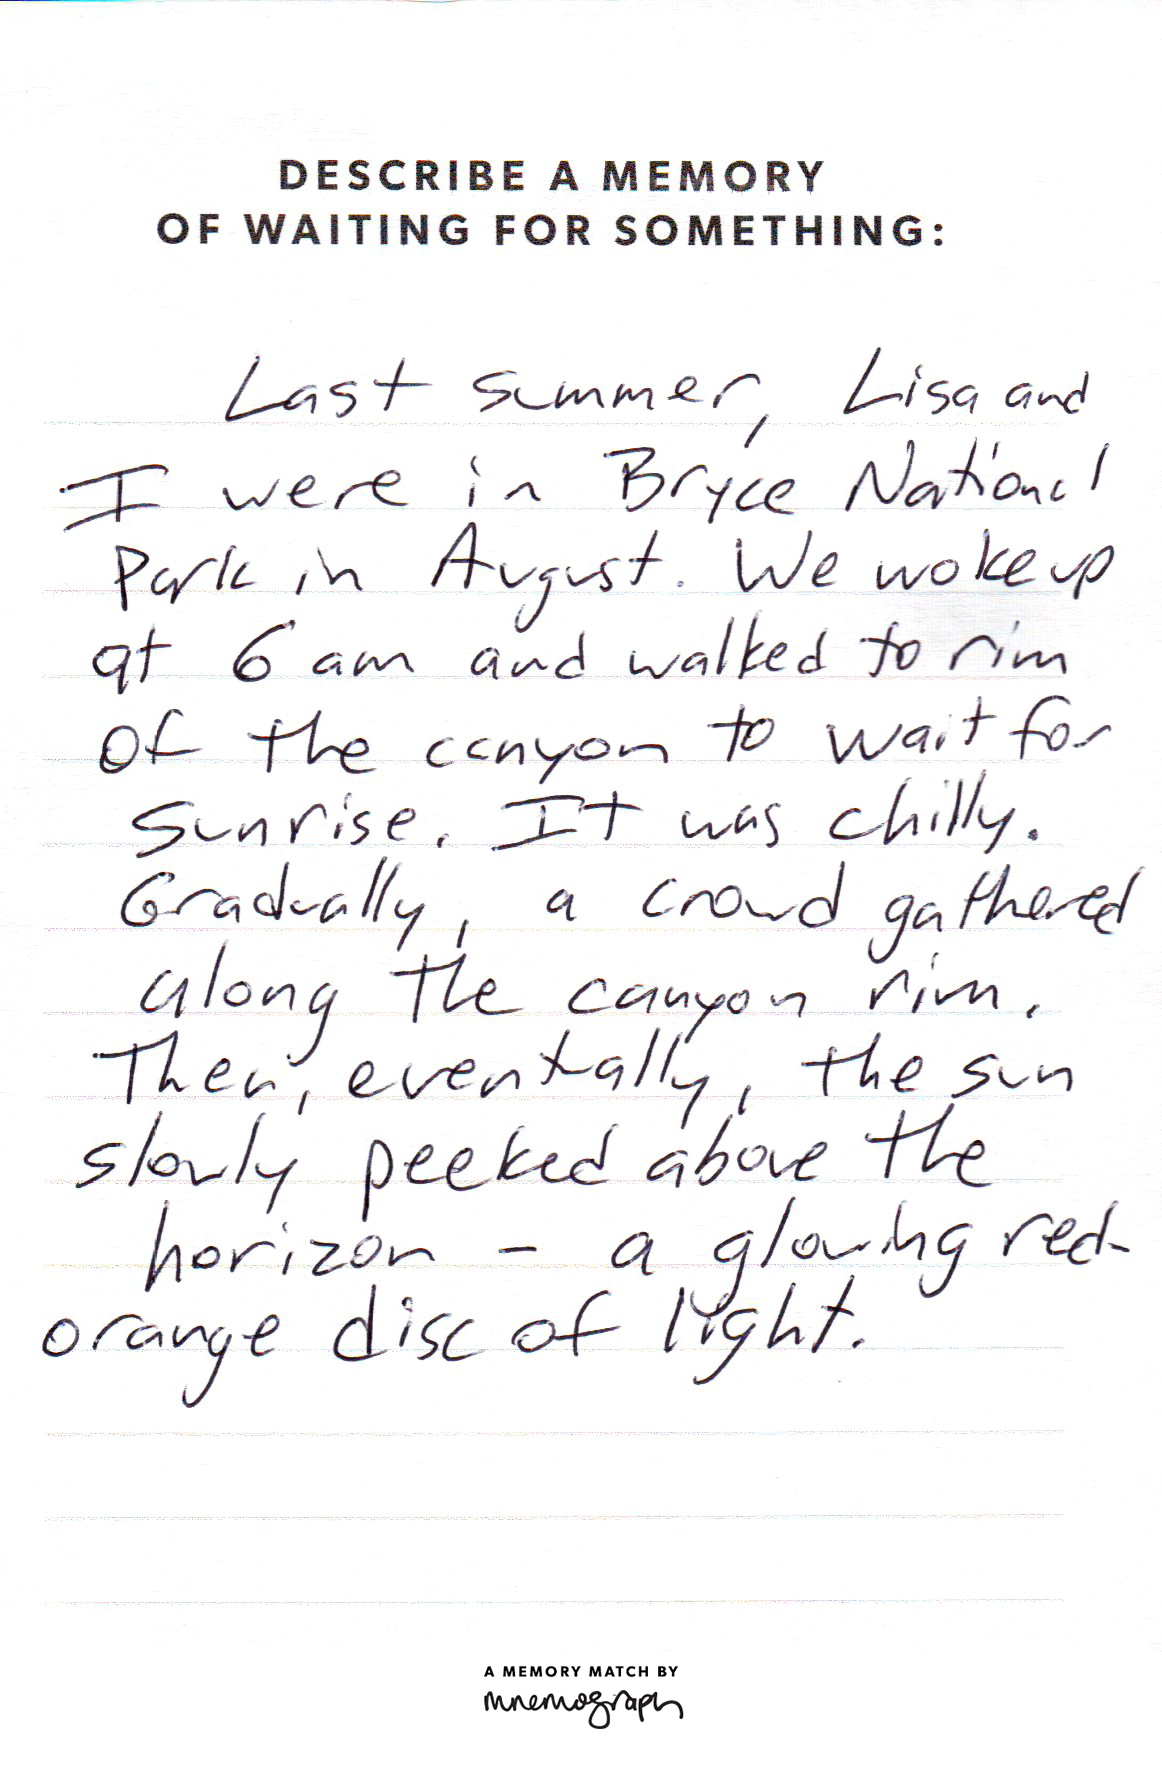 DESCRIBE A MEMORY
OF WAITING FOR SOMETHING:
Last summer, Lisa and
I were in Bryce National
Park in August. We woke up
at 6 am and walked to rim
of the canyon to wait for
sunrise. It was chilly.
Gradually, a crowd gathered
along the canyon rim.
Then, eventually, the sun
slowly peeked above the
horizon – a glowing red-
orange disc of light.
A MEMORY MATCH BY
mnemograph